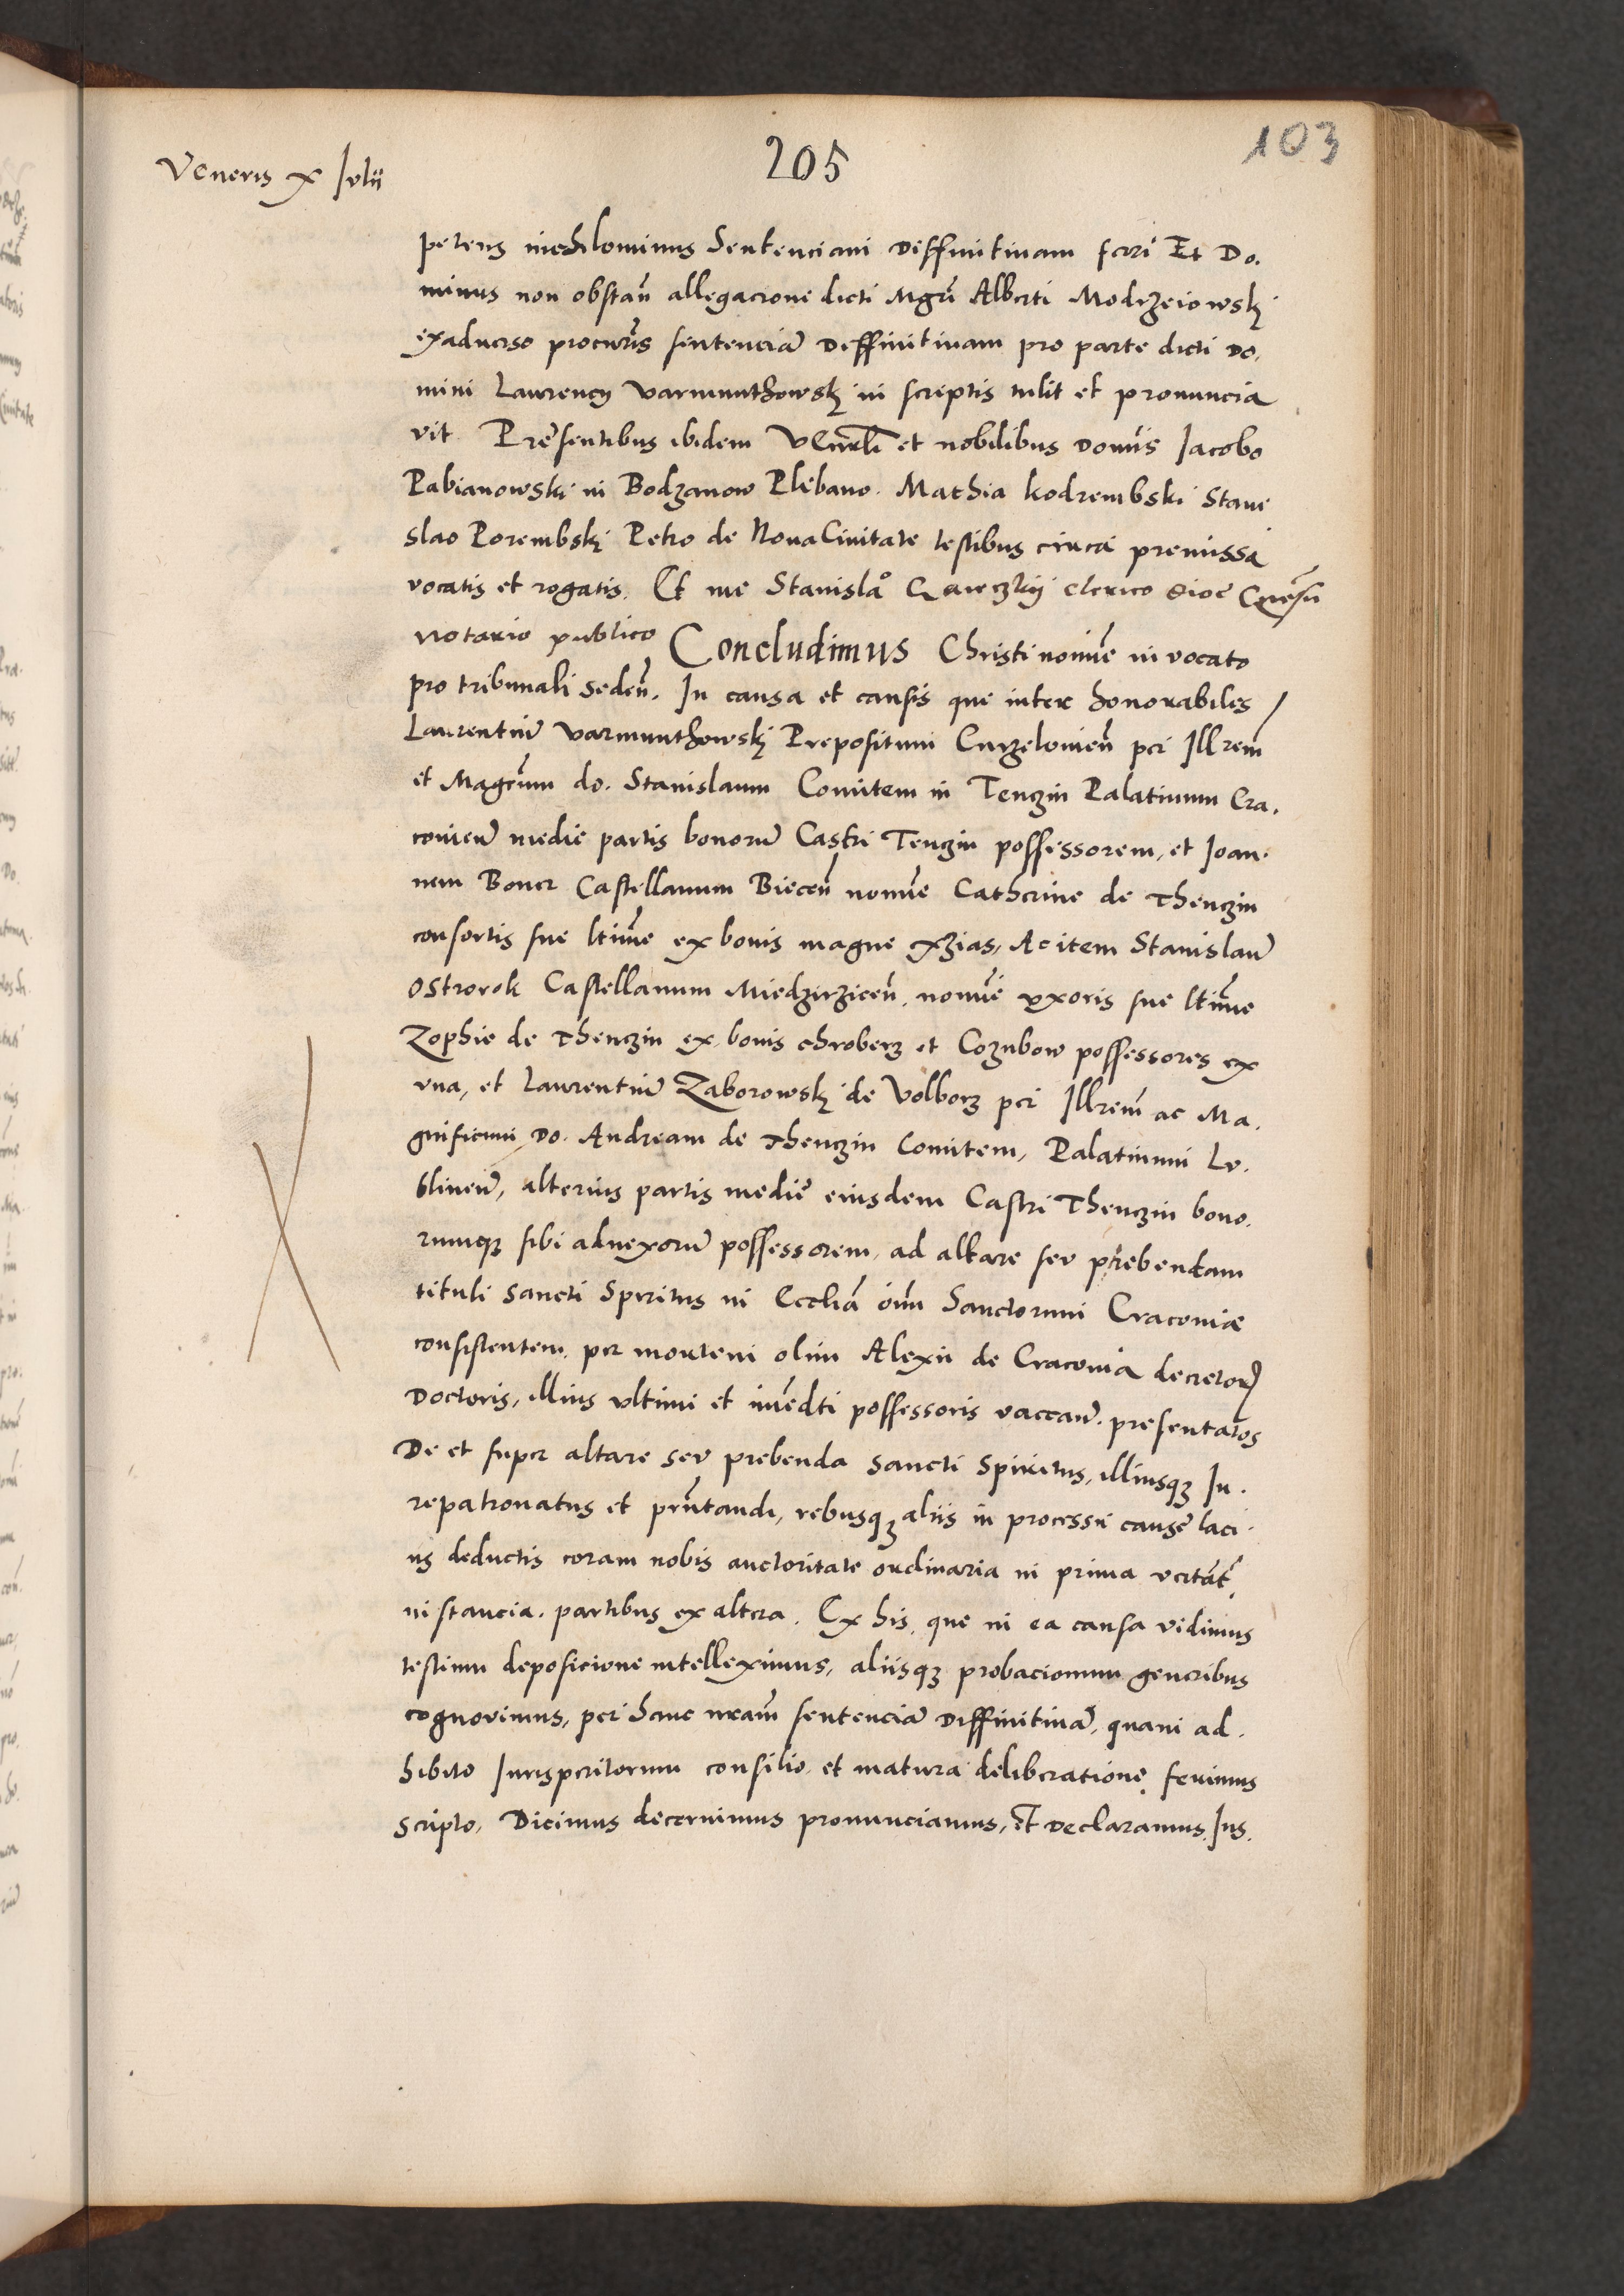 205
103
Veneris X Julii
petens nichilominus Sentenciam Diffinitivam ferri Et Do.
minus non obstan̄ allegacione dicti Mgri Alberti Modrzeiowskj
exadverso procurīs sentenciā Deffinitivam pro parte dicti Do.
mini Laurencij Varmunthowskj in scriptis tulit et pronuncia
vit Presentibus ibidem Venrli et nobilibus Domīs Jacobo
Pabianowski in Bodzanow Plebano. Mathia Kodrembski Stani
slao Porembskj Petro de Nova Civitate testibus circa premissa
vocatis et rogatis. Et me Stanislao clerico dioc Gnesn̄
notario publico Concludimus Christi nomīe invocato
pro tribunali seden̄. In causa et causis que inter honorabiles
Laurentiū Varmunthowskj Prepositum Curzelovien̄ per Illrem̄
et Magcum̄ do. Stanislaum Comitem in Tenczin Palatinum Cra.
covien̄ medie partis bonorū Castri Tenczin possessorem, et Joan.
nem Boner Castellanum Biecen̄ nomīe Catherine de Thenczin
consortis sue ltīme ex bonis magne xzias, Ac item Stanislaū
Ostrorok Castellanum Miedzirzicen̄. nomīe uxoris sue ltīme
Zophie de Thenczin ex bonis chroberz et Coznbow possessores ex
una, et Laurentiū Zaborowskj de Volborz per Illrem̄ ac Ma.
gnificum Do. Andream de Thenczin Comitem, Palatinum Lu.
blinen̄, alterius partis medie eiusdem Castri Thenczin bono.
rumqz sibi adnexorū possessorem, ad altare seu prebendam
tituli Sancti Spiritus in Ecclia om̄ Sanctorum Cracoviæ
consistentem. per mortem olim Alexii de Cracovia decretorꝝ
Doctoris, illius ultimi et īmedti possessoris vaccan̄. presentatos
De et super altare seu prebenda Sancti Spiritus, illiusqz Ju.
repatronatus et prn̄tandi, rebusqz aliis in processu cause laci
us deductis coram nobis auctoritate ordinaria in prima vertāt̄
instancia. partibus ex altera. Ex his que in ea causa vidimus
testium deposicione intelleximus, aliisqz probacionum generibus
cognovimus, per hanc nram̄ sentenciā Diffinitivā, quam ad.
hibito Jurisperitorum consilio et matura deliberatione ferimus
scripto, Dicimus decernimus pronunciamus, et Declaramus. Jus.